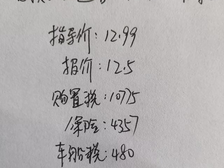 指导价:12.99
报价:12.5
购置税:10775
保险:4357
车船税:480